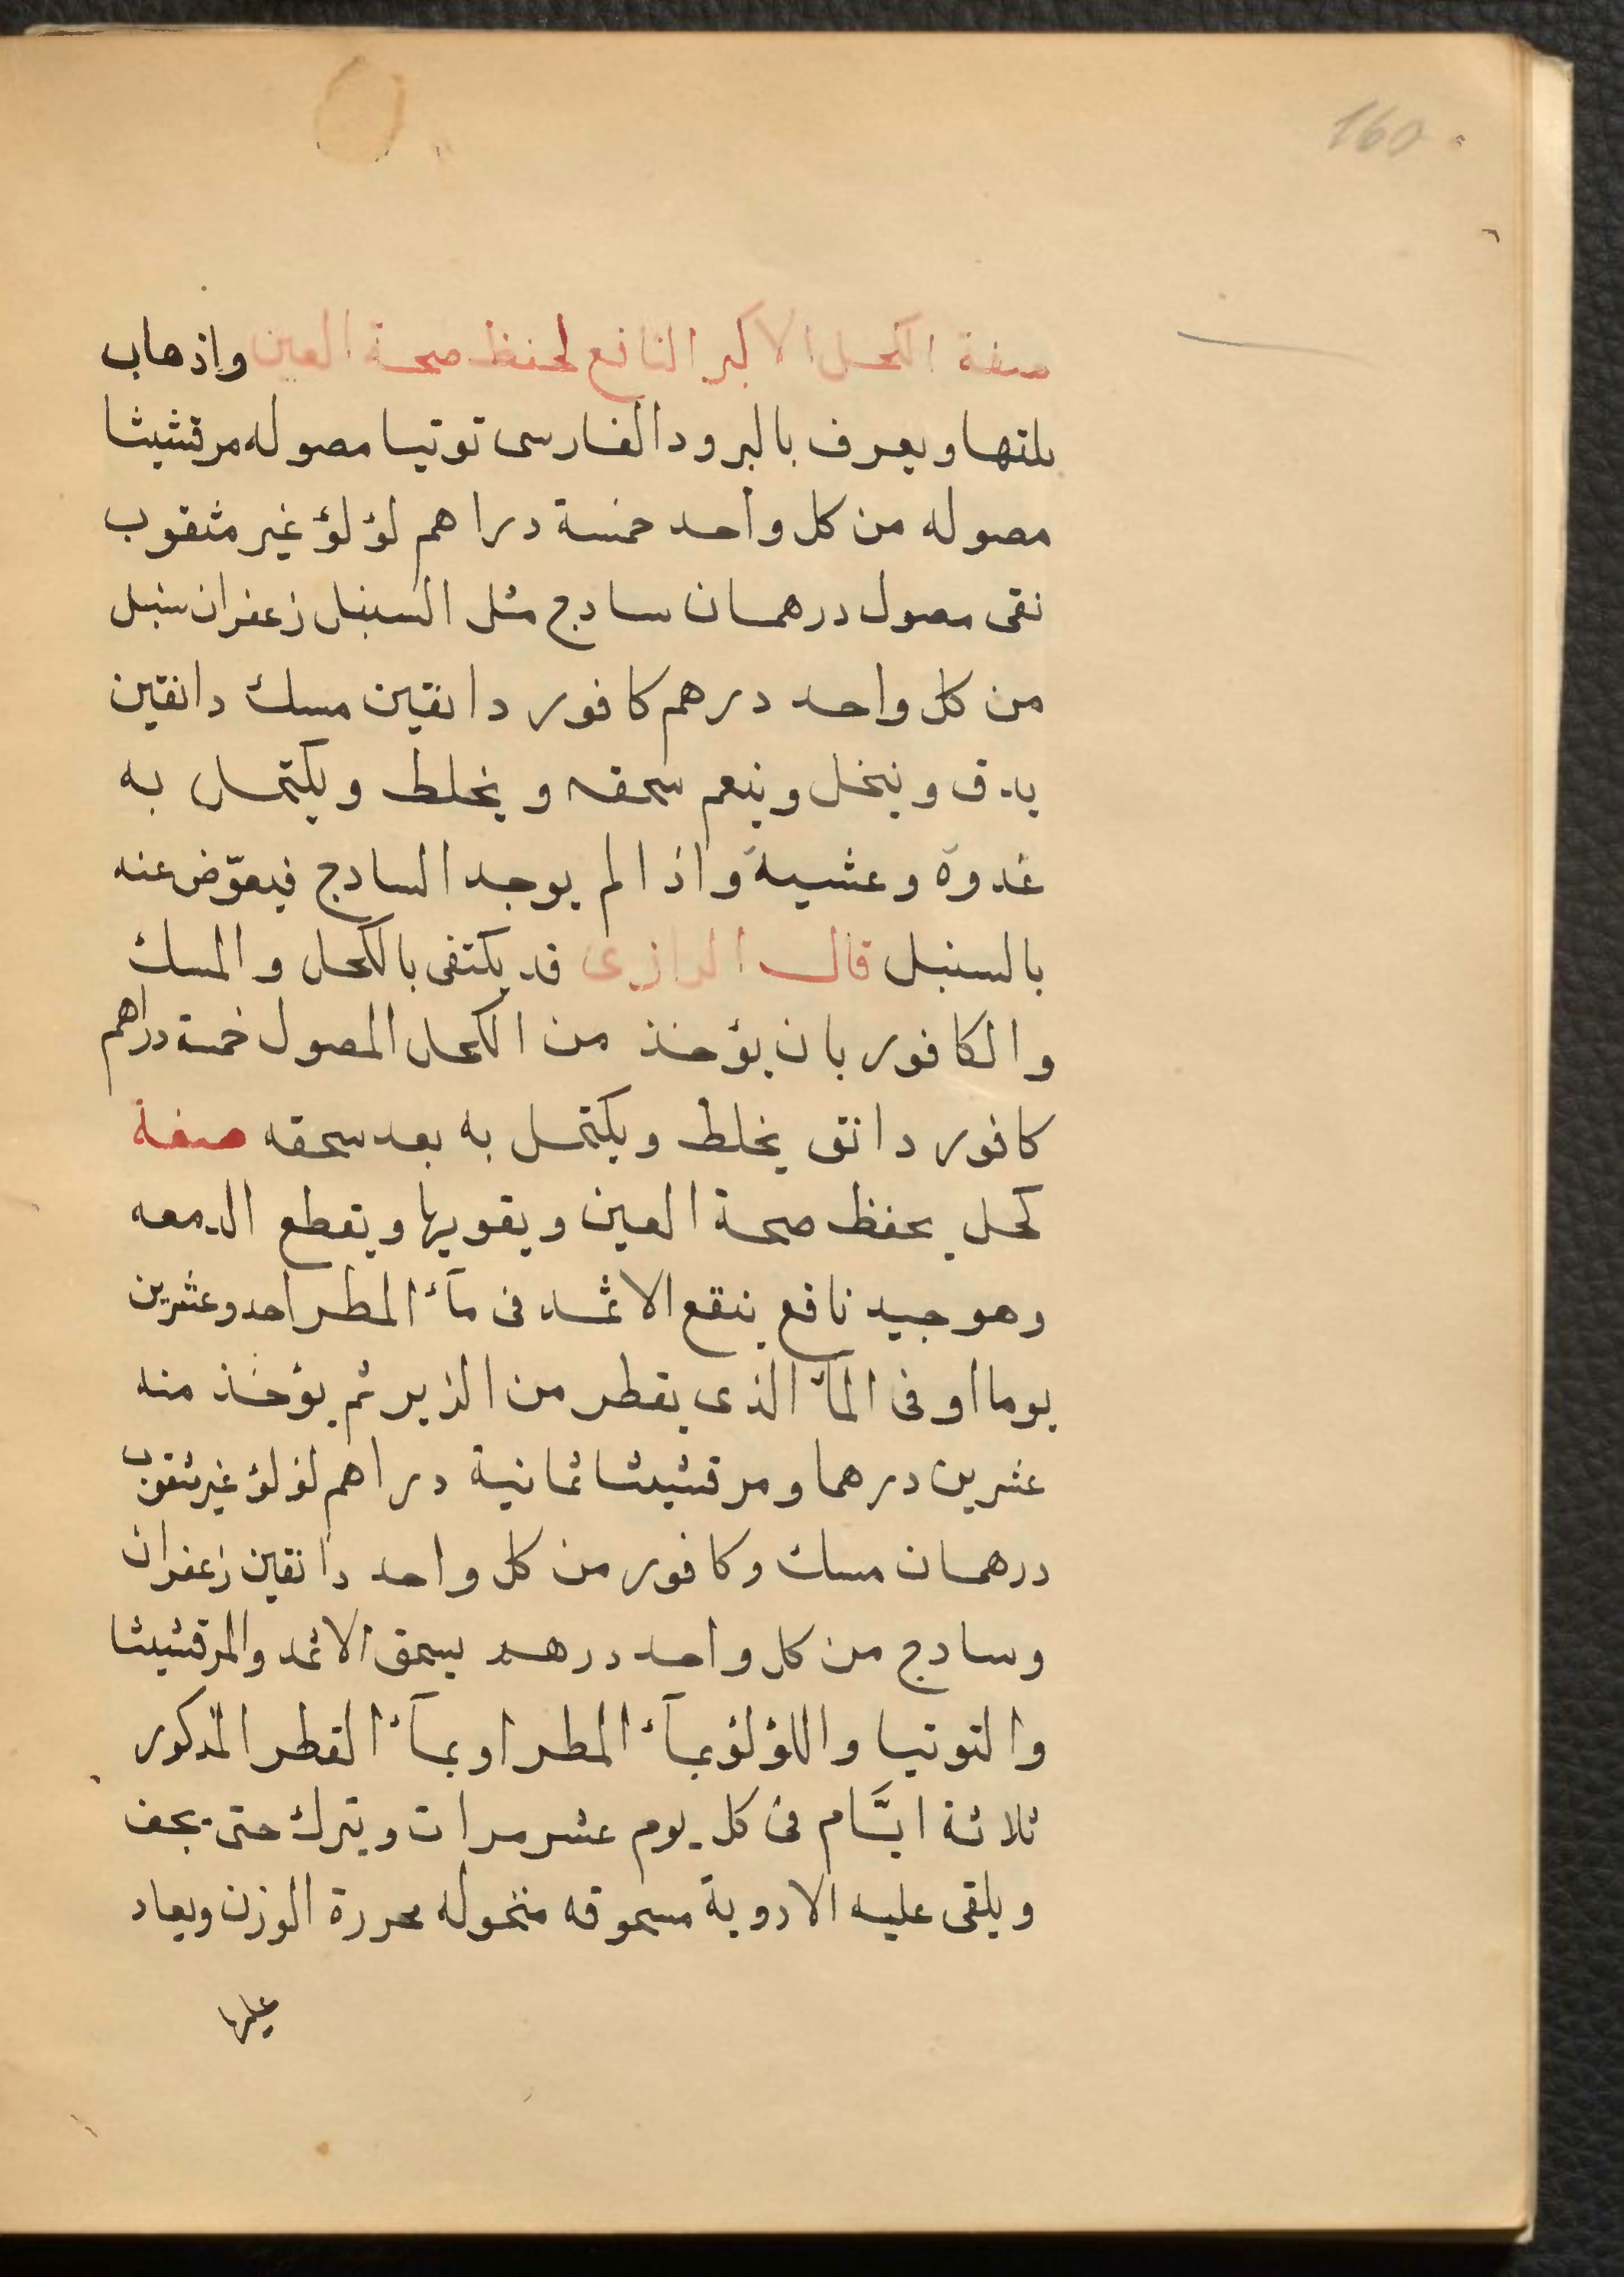 160
صفة الكحل الاكبر النافع لحفظ صحة العين واذهاب
بلتها ويعرف بالبرود الفارسى توتيا مصوله مرقشيثا
مصوله من كل واحد خمسة دراهم لؤلؤ غير مثقوب
نقى مصول درهمان سادج مثل السنبل زعفران سنبل
من كل واحد درهم كافور دانقين مسك دانقين
يدق وينخل وينعم سحقه ويخلط ويكتحل به
غدوة وعشية واذا لم يوجد السادج فيعوّض عنه
بالسنبل قال الرازى قد يكتفى بالكحل والمسك
والكافور بان يؤخذ من الكحل المصول خمسة دراهم
كافور دانق يخلط ويكتحل به بعد سحقه صفة
كحل يحفظ صحة العين ويقويها ويقطع الدمعه
وهو جيد نافع ينقع الاثمد فى مآء المطر احد وعشرين
يوما او فى المآء الذى يقطر من الزير ثم يؤخذ منه
عشرين درهما ومرقشيثا ثمانية دراهم لؤلؤ غير مثقوب
درهمان مسك وكافور من كل واحد دانقين زعفران
وسادج من كل واحد درهم يسحق الاثمد والمرقشيثا
والتوتيا واللؤلؤ بمآء المطر او بمآء القطر المذكور
ثلاثة ايَّام فى كل يوم عشر مرات ويترك حتى يجف
ويلقى عليه الادوية مسحوقه منخوله محررة الوزن ويعاد
عليها